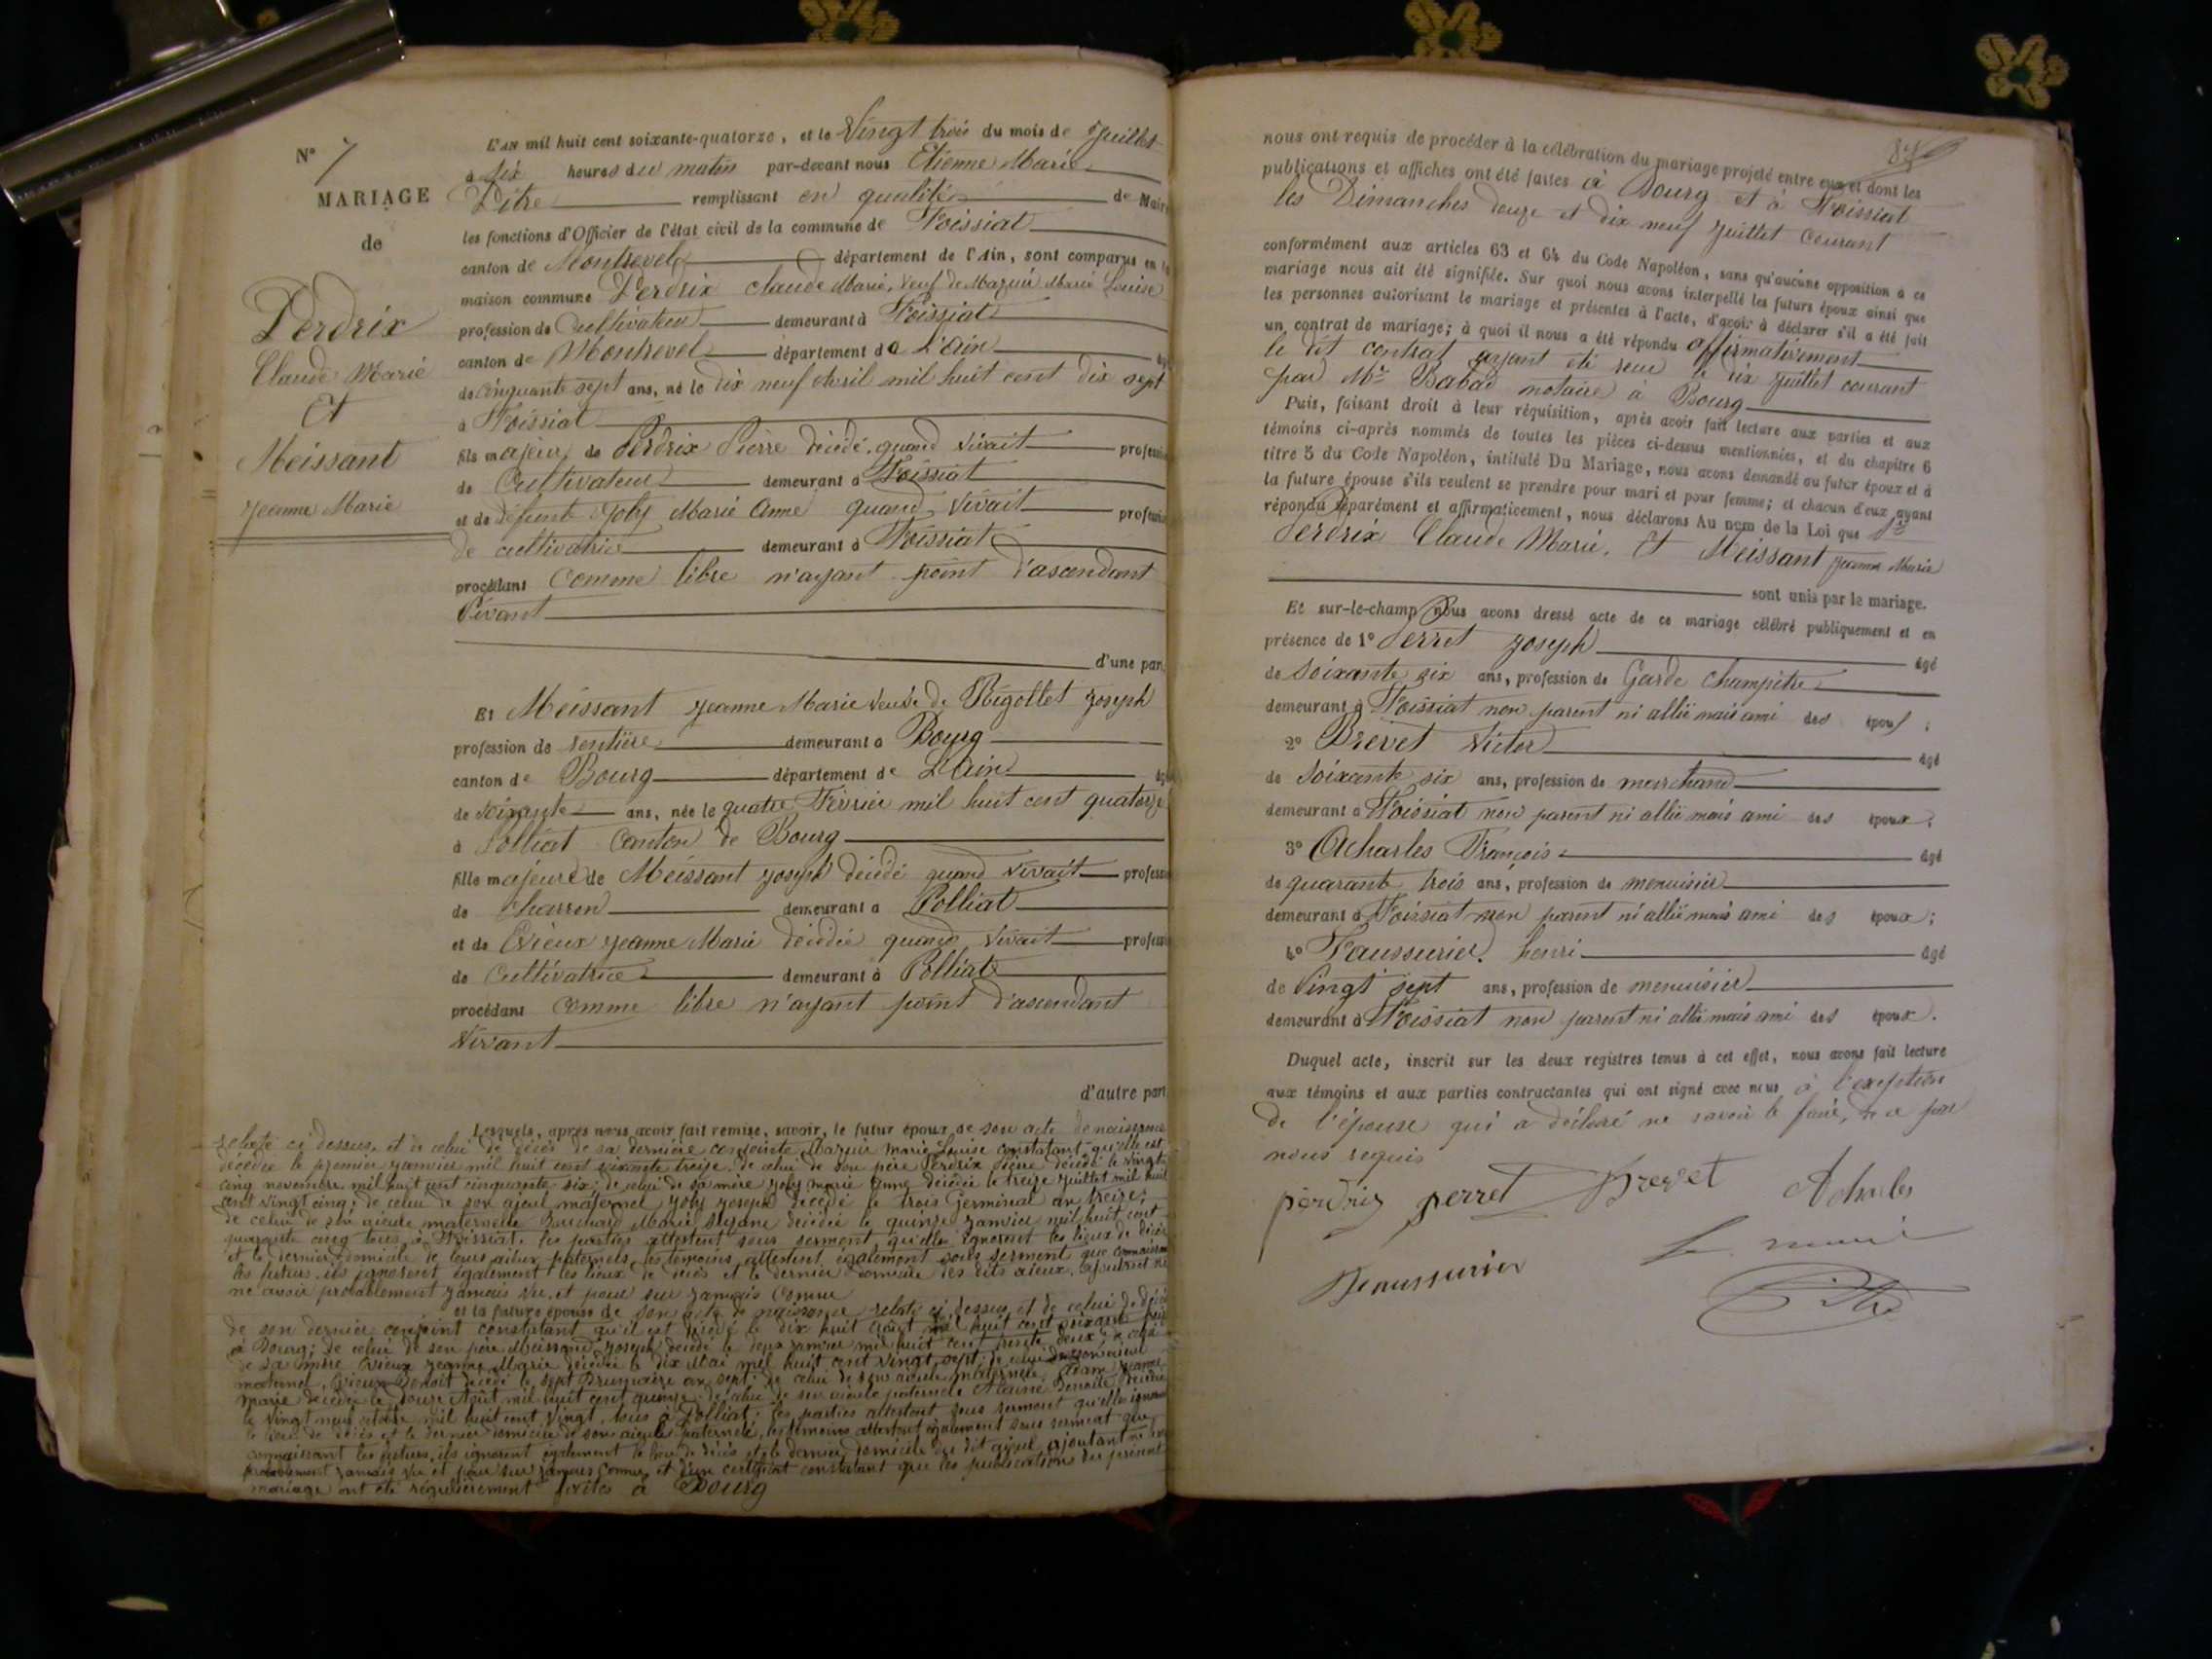 N° 7
MARIAGE
de
Perdrix
Claude Marie
Et
Meissant
Jeanne Marie
L'an mil huit cent soixante-quatorze, et le Vingt trois du mois de Juillet
à dix heures du matin par-devant nous Etienne Marie
Pitre remplissant en qualité de Maire
les fonctions d'Officier de l'état civil de la commune de Foissiat
canton de Montrevel département de l'Ain, sont comparus en la
maison commune Perdrix Claude Marie, veuf de Mazuir Marie Louise
profession de Cultivateur demeurant à Foissiat
canton de Montrevel département de L'Ain âgé
de cinquante sept ans, né le dix neuf Avril mil huit cent dix sept
à Foissiat
fils majeur de Perdrix Pierre décédé quand vivait profession
de Cultivateur demeurant à Foissiat
et de défunte Joly Marie Anne quand vivait profession
de cultivatrice demeurant à Foissiat
procédant comme libre n'ayant point d'ascendant
vivant
d'une part,
Et Meissant Jeanne Marie veuve de Rigollet Joseph
profession de rentière demeurant à Bourg
canton de Bourg département de L'Ain âgée
de soixante ans, née le quatre Février mil huit cent quatorze
à Polliat Canton de Bourg
fille majeure de Meissant Joseph décédé quand vivait profession
de charron demeurant à Polliat
et de Evieux Jeanne Marie décédée quand vivait profession
de Cultivatrice demeurant à Polliat
procédant comme libre n'ayant point d'ascendant
vivant
d'autre part
Lesquels, après nous avoir fait remise, savoir, le futur époux de son acte de naissance
relaté ci dessus, et de celui de décès de sa dernière conjointe Mazuir Marie Louise constatant qu'elle est
décédée le premier janvier mil huit cent soixante treize, de celui de son père Perdrix Pierre décédé le vingt
cinq novembre mil huit cent cinquante six; de celui de sa mère Joly Marie Anne décédée le treize Juillet mil huit
cent vingt cinq; de celui de son aieul maternel Joly Joseph décédé le trois Germinal an treize;
de celui de son aieule maternelle Marie décédée le quinze janvier mil huit cent
quarante cinq tous à Foissiat. les parties attestent sous serment qu'elles ignorent les lieux de décès
et le dernier domicile de leurs aieux paternels, les témoins attestent également sous serment que connaissant
les futurs, ils ignorent également les lieux de décès et le dernier domicile des dits aieux, ajoutant ne
ne avoir probablement jamais vu et pour sur jamais connu
et la future épouse de son acte de naissance relaté ci dessus et de celui de décès
de son dernier conjoint constatant qu'il est décédé le dix huit août mil huit cent soixante
à Bourg; de celui de son père Meissant Joseph décédé le deux janvier mil huit cent trente deux; de celui
de sa mère Evieux Jeanne Marie décédée le dix Mai mil huit cent vingt sept; de celui de son aieul
maternel, Evieux Benoit décédé le sept Brumaire an sept; de celui de son aieule maternelle, Adam Jeanne
Marie décédée le douze Août mil huit cent quinze; de celui de son aieule paternelle Benoite décédée
le vingt neuf octobre mil huit cent vingt, tous à Polliat; les parties attestent sous serment qu'elles ignorent
le lieu de décès et le dernier domicile de son aieul paternel, les témoins attestent également sous serment que
connaissant les futurs, ils ignorent également le lieu de décès et le dernier domicile du dit aieul ajoutant ne
probablement jamais vu et pour sur jamais connu, et d'un certificat constatant que les publications du présent
mariage ont été régulièrement faites à Bourg
nous ont requis de procéder à la célébration du mariage projeté entre eux et dont les
publications et affiches ont été faites à Bourg et à Foissiat
les Dimanches douze et dix neuf Juillet courant
conformément aux articles 63 et 64 du Code Napoléon, sans qu'aucune opposition à ce
mariage nous ait été signifiée. Sur quoi nous avons interpellé les futurs époux ainsi que
les personnes autorisant le mariage et présentes à l'acte, d'avoir à déclarer s'il a été fait
un contrat de mariage; à quoi il nous a été répondu affirmativement
le dit contrat ayant été reçu le dix Juillet courant
par Me Babad notaire à Bourg
Puis, faisant droit à leur réquisition, après avoir fait lecture aux parties et aux
témoins ci-après nommés de toutes les pièces ci-dessus mentionnées, et du chapitre 6
titre 5 du Code Napoléon, intitulé Du Mariage, nous avons demandé au futur époux et à
la future épouse s'ils veulent se prendre pour mari et pour femme; et chacun d'eux ayant
répondu séparément et affirmativement, nous déclarons Au nom de la Loi que
Perdrix Claude Marie, Et Meissant Jeanne Marie
sont unis par le mariage.
Et sur-le-champ nous avons dressé acte de ce mariage célébré publiquement et en
présence de 1° Perret Joseph âgé
de soixante six ans, profession de Garde champêtre
demeurant à Foissiat non parent ni allié mais ami des époux;
2° Brevet Victor âgé
de soixante six ans, profession de marchand
demeurant à Foissiat non parent ni allié mais ami des époux;
3° Acharles François âgé
de quarante trois ans, profession de menuisier
demeurant à Foissiat non parent ni allié mais ami des époux;
4° Faussurier henri âgé
de vingt sept ans, profession de menuisier
demeurant à Foissiat non parent ni allié mais ami des époux.
Duquel acte, inscrit sur les deux registres tenus à cet effet, nous avons fait lecture
aux témoins et aux parties contractantes qui ont signé avec nous à l'exception
de l'épouse qui a déclaré ne savoir le faire, de ce par
nous requis
perdrix perret Brevet Acharles
Feaussurier Le maire
Pitre